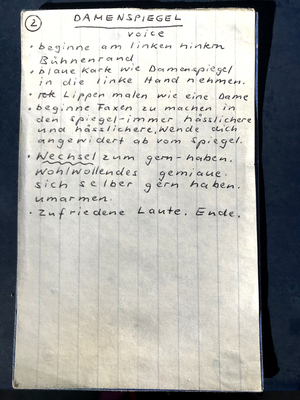 ② DAMENSPIEGEL
voice
• beginne am linken hinkm
Bühnenrand
• blaue Karte wie Damenspiegel
in die linke Hand nehmen.
• rote Lippen malen wie eine Dame
• beginne Faxen zu machen in
den Spiegel-immer hässlichere
und hässlichere. Wende dich
angewidert ab vom Spiegel.
• Wechsel zum gern-haben.
Wohlwollendes gemiaue.
sich selber gern haben.
umarmen.
• zufriedene Laute. Ende.